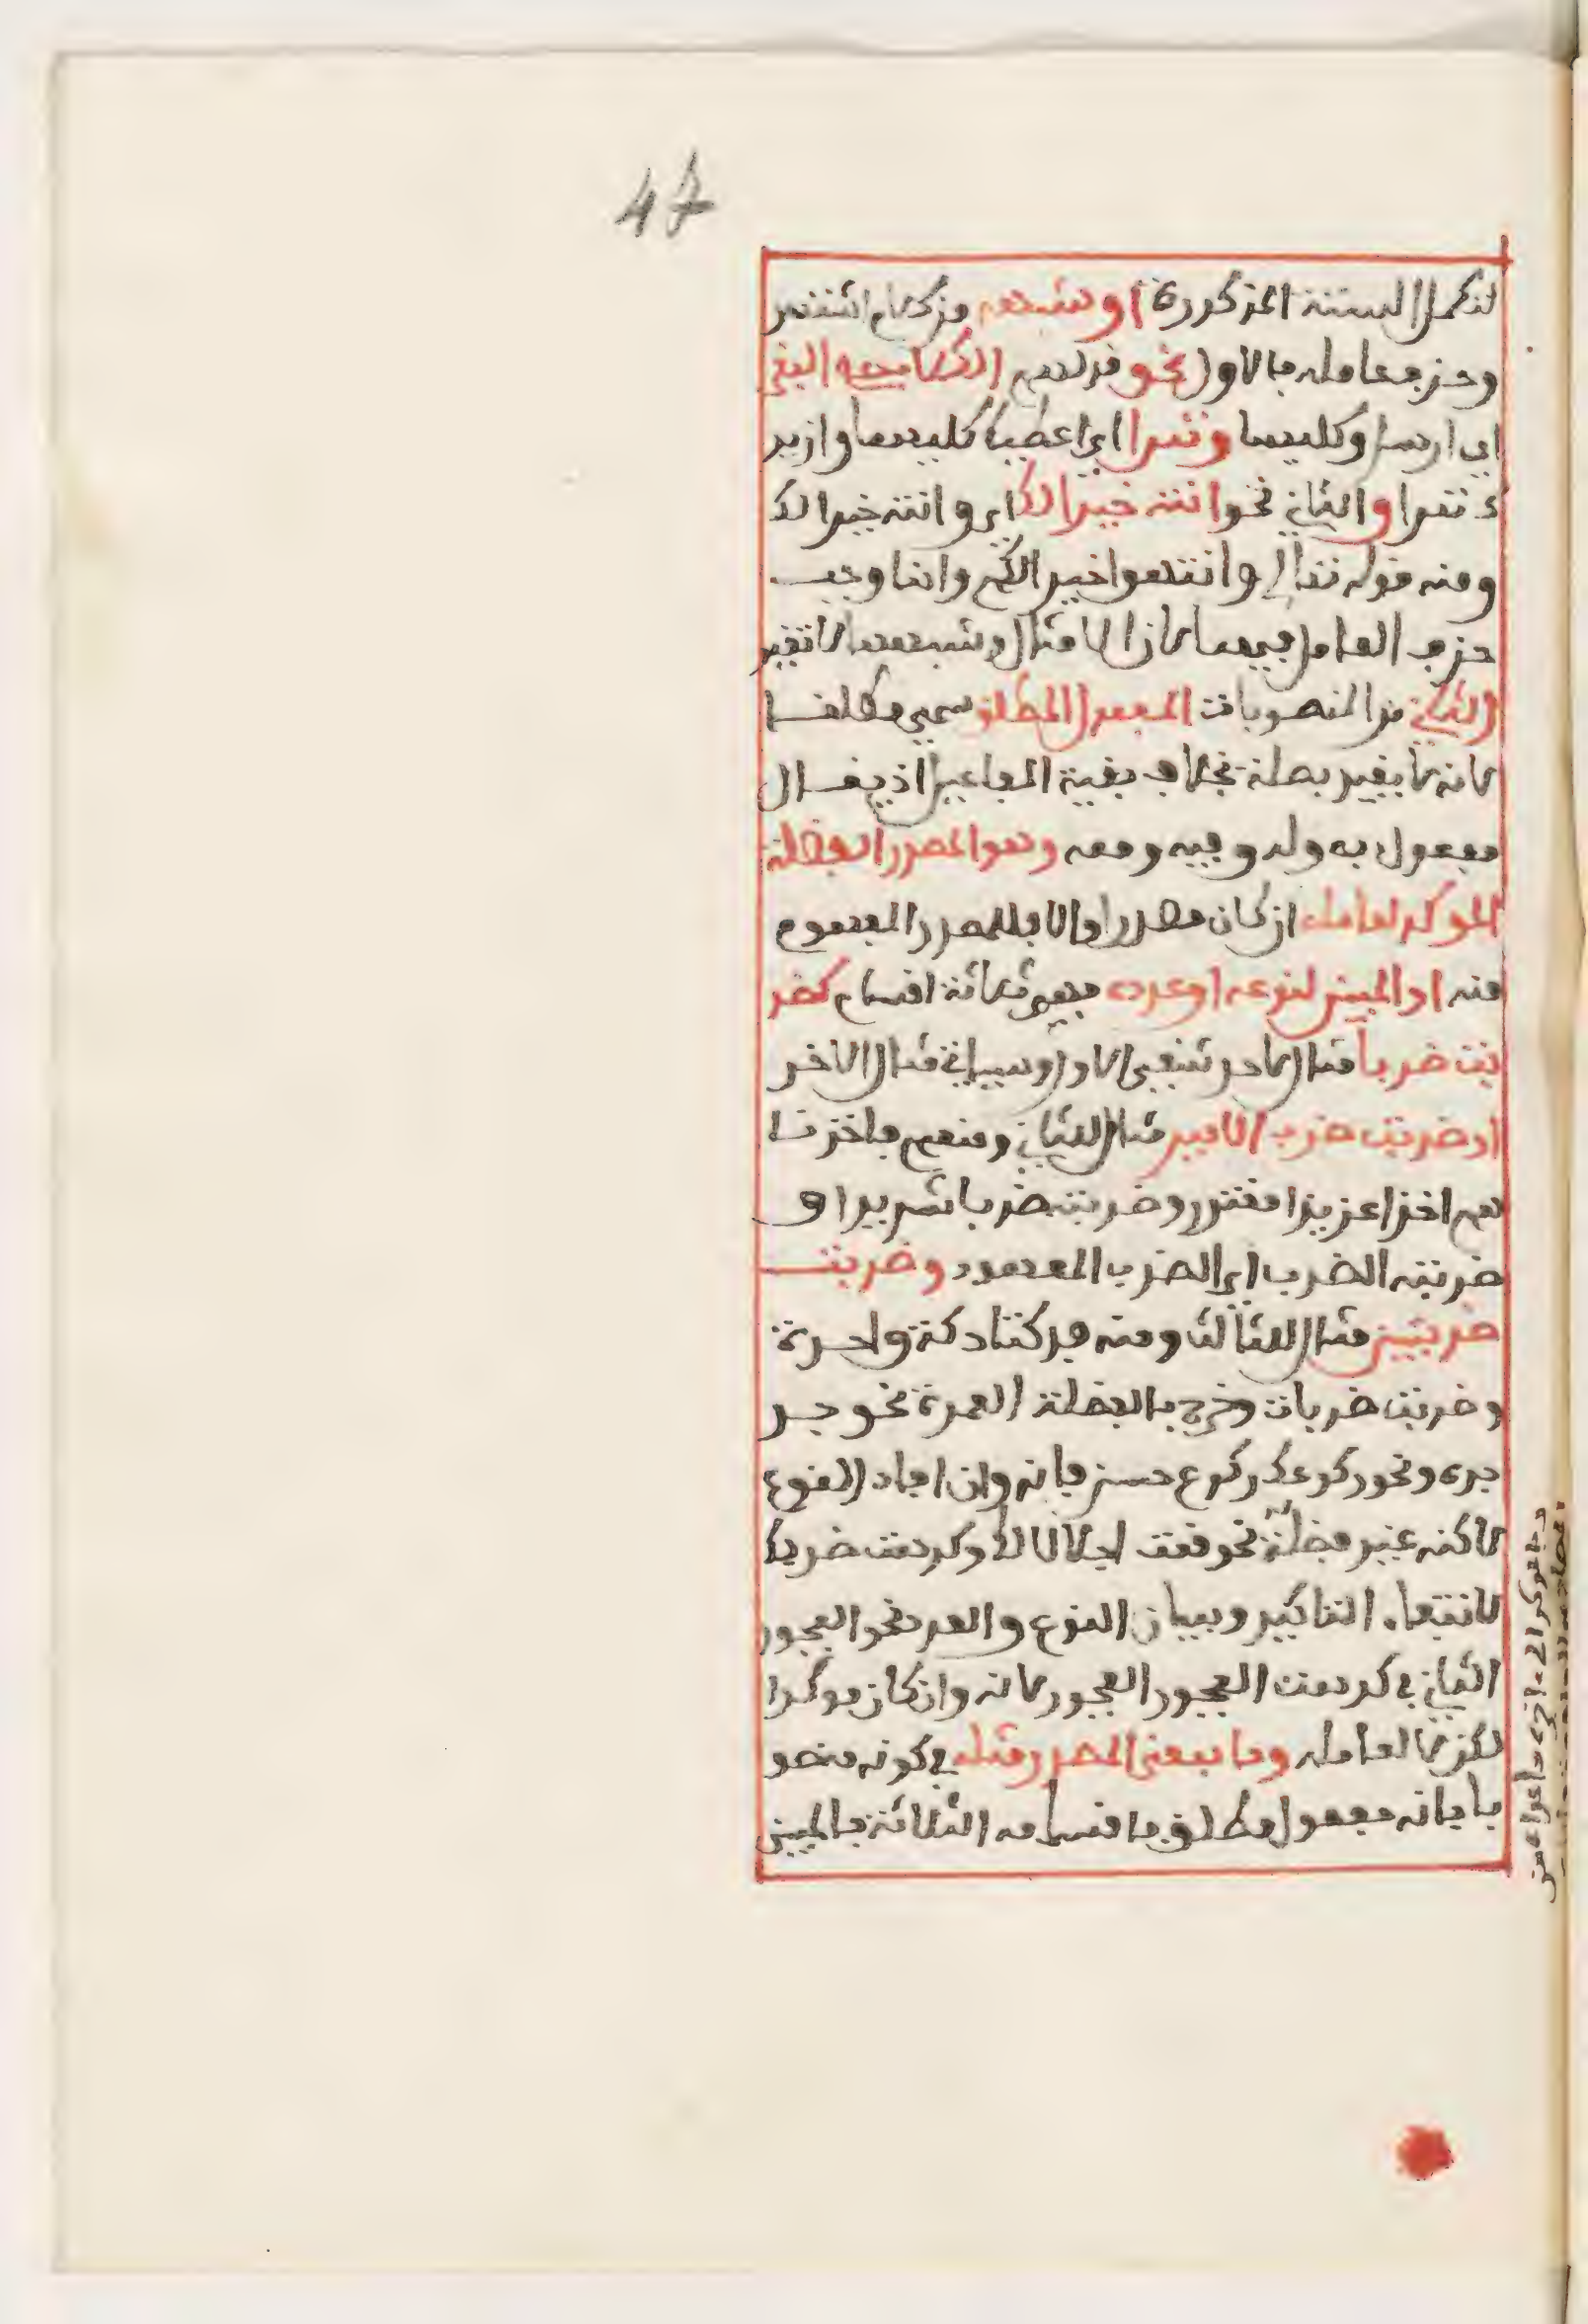 47
لتكمل الستة المذكورة او شبهه من كلام اشتهر
وحذف عامله فالاول نحو قولهم الكلاب على البقر
اي ارسل وكليهما وتمرا اي اعطيك كليهما وازيد
ك تمرا والثاني نحو انته خيرا لك اي وانته خيرا لك
ومنه قوله تعالى وانتهوا خيرا لكم وانما وجب
حذف العامل فيهما لان الامثال وشبهها لا تغير
الثاني من المنصوبات المفعول المطلق سمي مطلقا
لانه لا يقيد بصلة بخلاف بقية المفاعيل اذ يقال
مفعول به وله وفيه ومعه وهو المصدر الفضلة
الموكد لعامله ان كان مصدرا والا فللمصدر المفهوم
منه او المبين لنوعه او عدده فهي ثلاثة اقسام كضر
بت ضربا مثال لاحد شقي الاول وسياتي مثال الاخر
او ضربت ضرب الامير مثال للثاني ومنهم فاخذنا
هم اخذ عزيز مقتدر وضربت ضربا شديدا و
ضربته الضرب اي الضرب المعهود وضربت
ضربتين مثال للثالث ومنه فدكتا دكة واحدة
وضربت ضربات وخرج بالفضلة العمدة نحو جد
جده ونحو ركوعك ركوع حسن فانه وان افاد النوع
لاكنه غير فضلة نحو قمت اجلالا لك وكرهت ضربك
لانتفاء التاكيد وبيان النوع والعدد نحو الفجور
الثاني في كرهت الفجور الفجور لانه وان كان موكدا
لكن لا لعامله وما بمعنى المصدر مثله في كونه منصو
با بانه مفعول مطلق باقسامه الثلاثة فالمبين